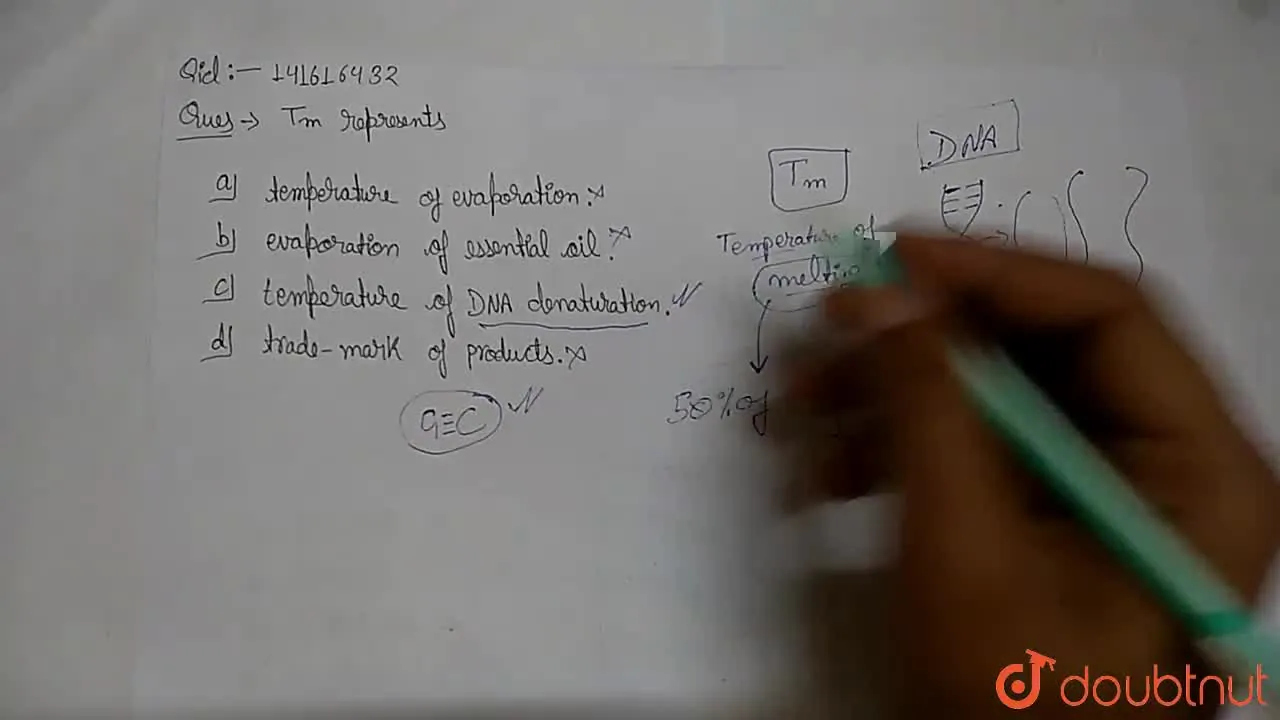 Qid :- 141616432
Ques → Tm represents
a) temperature of evaporation. ×
b) evaporation of essential oil. ×
c) temperature of DNA denaturation. ✓
d) trade-mark of products. ×
G≡C ✓
DNA
Tm
Temperature of
melting
50% of
doubtnut